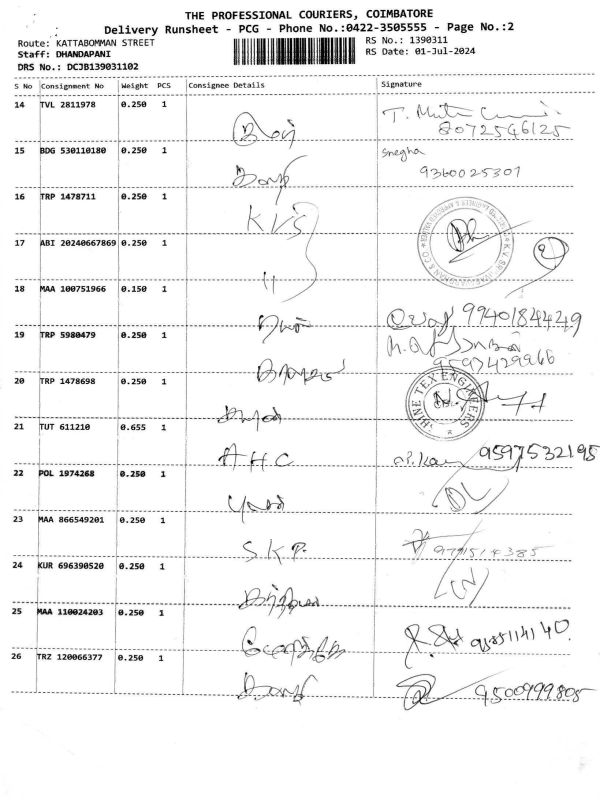 THE PROFESSIONAL COURIERS, COIMBATORE
Delivery Runsheet - PCG - Phone No.:0422-3505555 - Page No.:2
Route: KATTABOMMAN STREET RS No.: 1390311
Staff: DHANDAPANI RS Date: 01-Jul-2024
DRS No.: DCJB139031102
S No Consignment No Weight PCS Consignee Details Signature
14 TVL 2811978 0.250 1
8072546125
15 BDG 530110180 0.250 1 Snegha
9360025301
16 TRP 1478711 0.250 1
KVS
17 ABI 20240667869 0.250 1
"
18 MAA 100751966 0.150 1
9940184429
19 TRP 5980479 0.250 1
9593429966
20 TRP 1478698 0.250 1
TEX ENGINEERS
21 TUT 611210 0.655 1
A.H.C 9597532195
22 POL 1974268 0.250 1
DL
23 MAA 866549201 0.250 1
S.K.P. 9791514385
24 KUR 696390520 0.250 1
25 MAA 110024203 0.250 1
9585114140
26 TRZ 120066377 0.250 1
9500999805